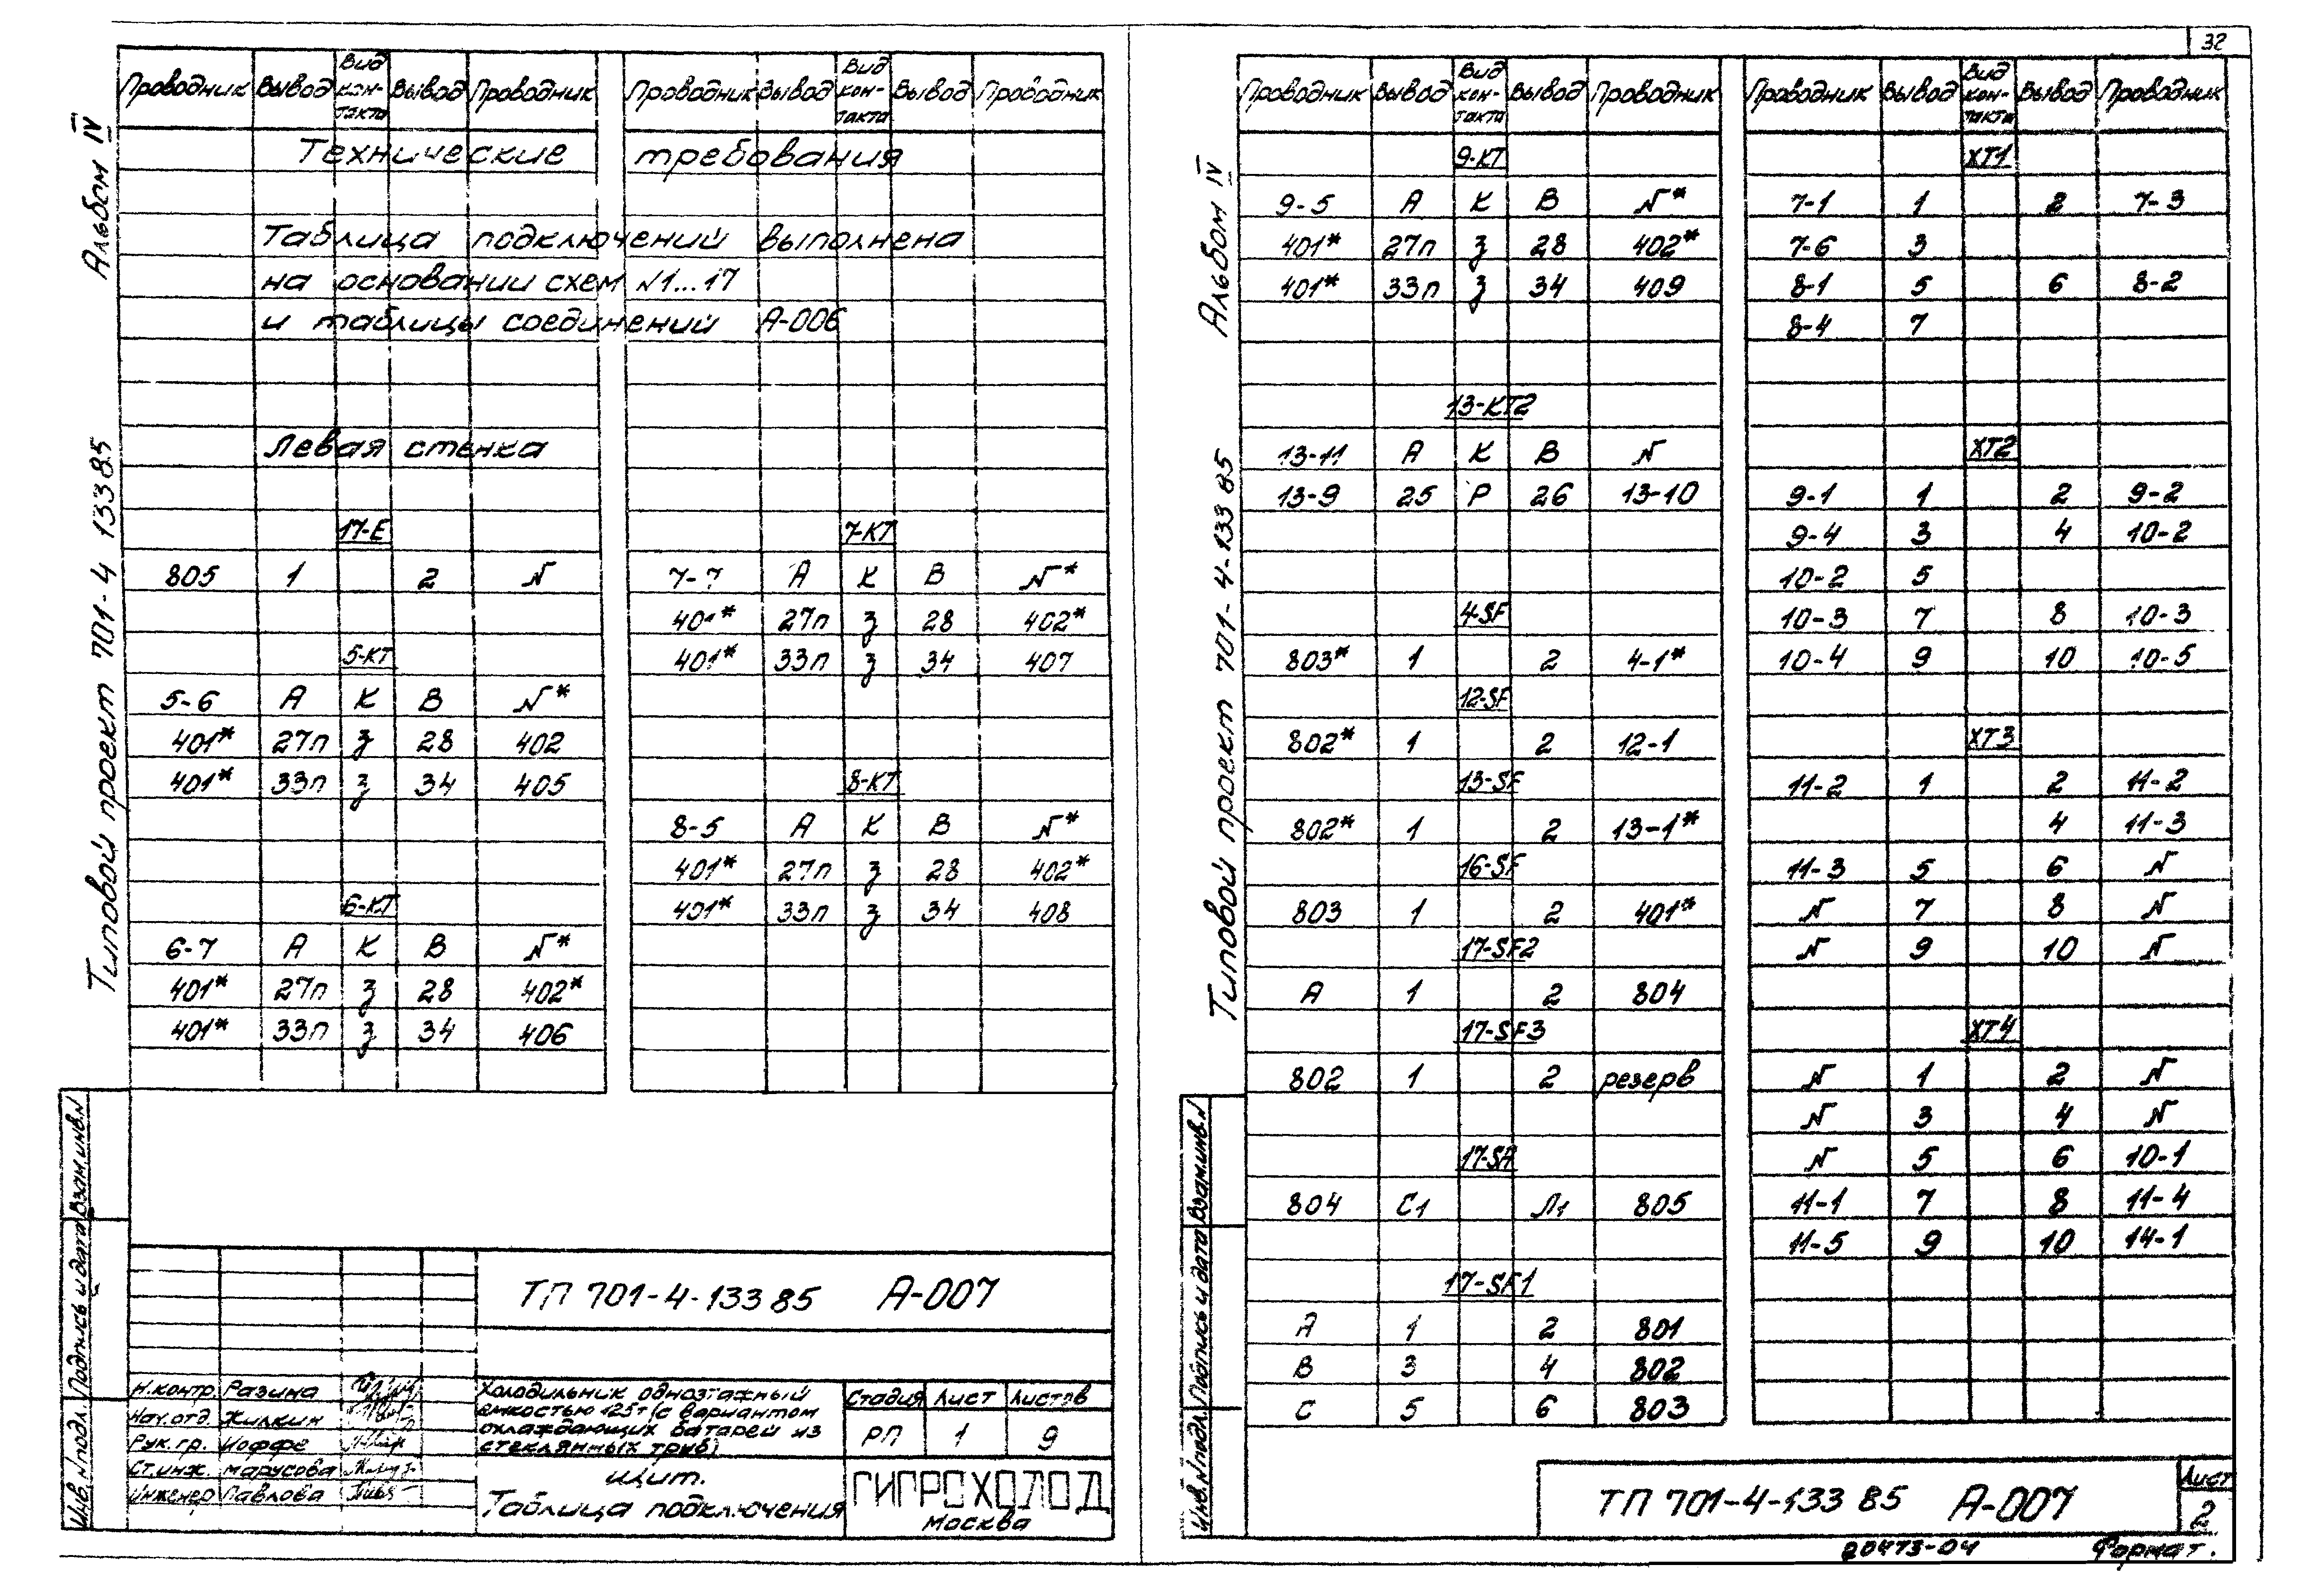 32
Альбом IV
Типовой проект 701-4 133 85
Проводник Вывод Вид кон-такта Вывод Проводник Проводник Вывод Вид кон-такта Вывод Проводник
Технические требования
Таблица подключений выполнена
на основании схем N1...17
и таблицы соединений А-006
Левая стенка
17-Е
805 1 2 N
5-КТ
5-6 А К В N*
401* 27п з 28 402
401* 33п з 34 405
6-КТ
6-7 А К В N*
401* 27п з 28 402*
401* 33п з 34 406
7-КТ
7-7 А К В N*
401* 27п з 28 402*
401* 33п з 34 407
8-КТ
8-5 А К В N*
401* 27п з 28 402*
401* 33п з 34 408
Взам.инв.N
Подпись и дата
Инв.Nподл.
ТП 701-4-133 85 А-007
Н.контр. Разина
Нач.отд. Жилкин
Рук.гр. Иоффе
Ст.инж. Марусова
Инженер Павлова
Холодильник одноэтажный
емкостью 125т (с вариантом
охлаждающих батарей из
стеклянных труб)
Щит.
Таблица подключения
Стадия Лист Листов
РП 1 9
ГИПРОХОЛОД
Москва
Альбом IV
Типовой проект 701-4-133 85
Проводник Вывод Вид кон-такта Вывод Проводник Проводник Вывод Вид кон-такта Вывод Проводник
9-КТ
9-5 А К В N*
401* 27п з 28 402*
401* 33п з 34 409
13-КТ2
13-11 А К В N
13-9 25 Р 26 13-10
4-SF
803* 1 2 4-1*
12-SF
802* 1 2 12-1
13-SF
802* 1 2 13-1*
16-SF
803 1 2 401*
17-SF2
А 1 2 804
17-SF3
802 1 2 резерв
17-SA
804 С1 Л1 805
17-SF1
А 1 2 801
В 3 4 802
С 5 6 803
ХТ1
7-1 1 2 7-3
7-6 3
8-1 5 6 8-2
8-4 7
ХТ2
9-1 1 2 9-2
9-4 3 4 10-2
10-2 5
10-3 7 8 10-3
10-4 9 10 10-5
ХТ3
11-2 1 2 11-2
4 11-3
11-3 5 6 N
N 7 8 N
N 9 10 N
ХТ4
N 1 2 N
N 3 4 N
N 5 6 10-1
11-1 7 8 11-4
11-5 9 10 14-1
Взам.инв.N
Подпись и дата
Инв.Nподл.
ТП 701-4-133 85 А-007
Лист
2
20473-04 Формат.